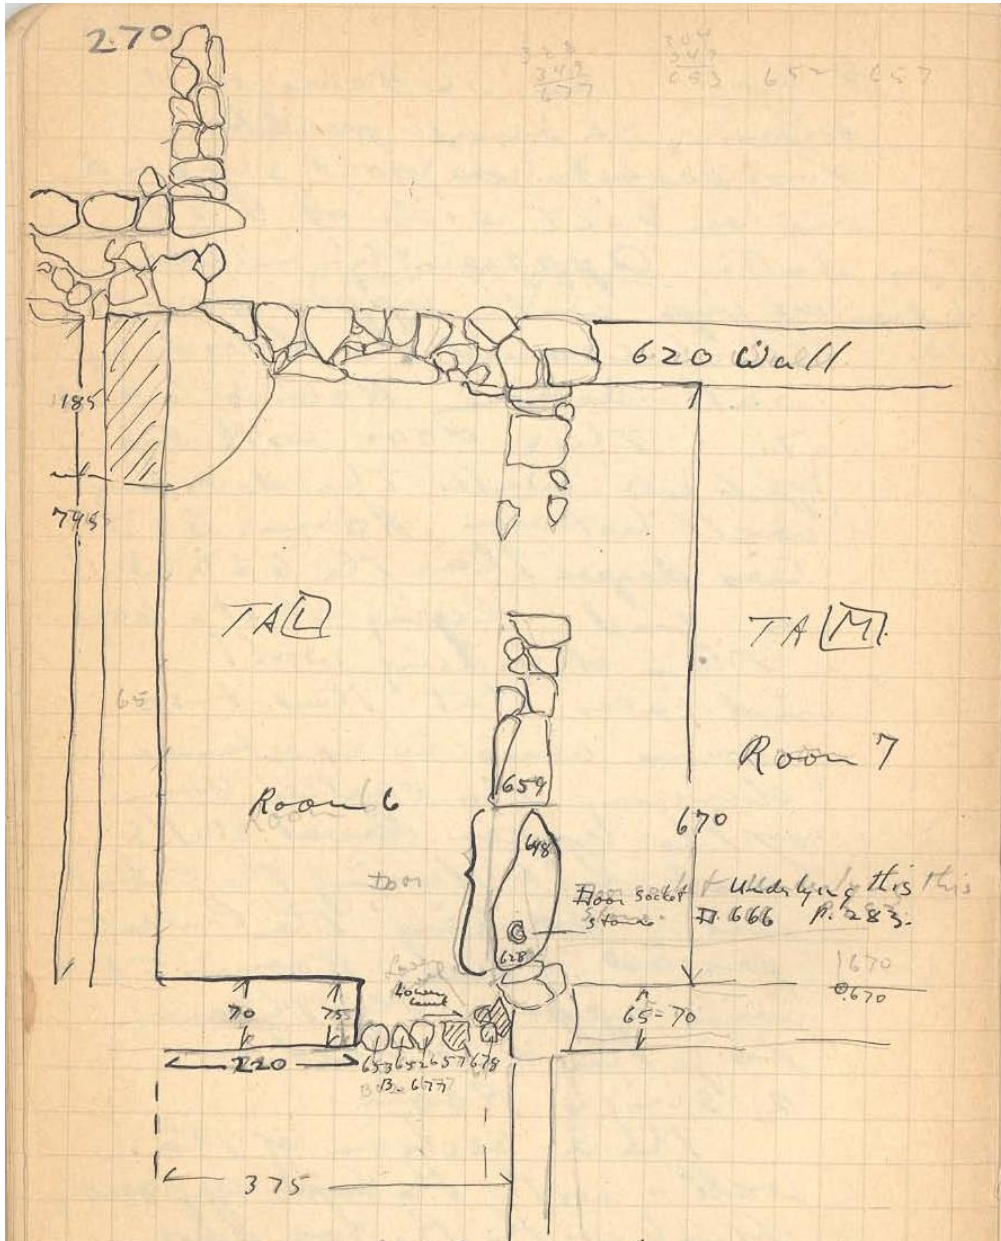 270
349
677
349
653
652 - 657
620 Wall
185
795
TA L
TA M
65
Room 6
Room 7
659
670
648
Door
Door socket
stone
Underlying this
D. 666 p. 283.
628
1670
0.670
Lower
level
70
75
65-70
220
653 652 657 678
B. 677
375